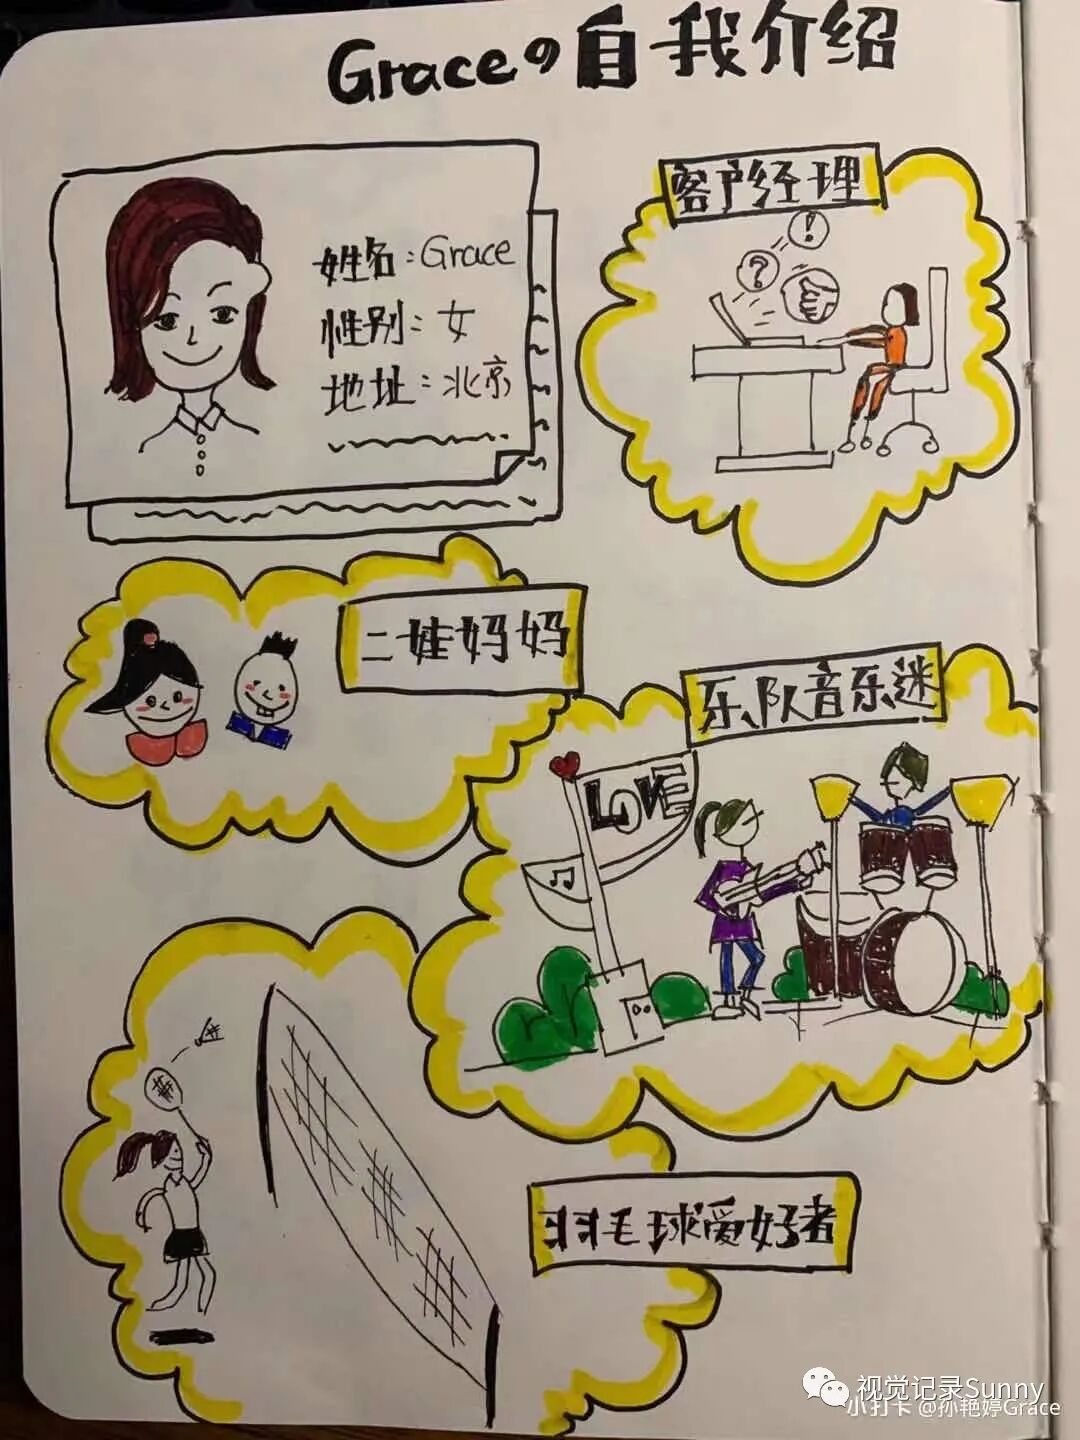 Graceの自我介绍
姓名：Grace
性别：女
地址：北京
客户经理
!
?
二娃妈妈
乐队音乐迷
LOVE
羽毛球爱好者
视觉记录Sunny
小打卡 @孙艳婷Grace